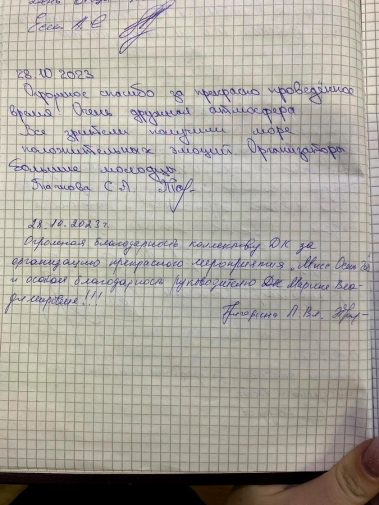 28.10.2023
Огромное спасибо за прекрасно проведённое
время! Очень дружная атмосфера
Все зрители получили море
положительных эмоций. Организатора
Большие молодцы
28.10.2023г.
Огромная благодарность коллективу ДК за
организацию прекрасного мероприятия „Мисс Осень"
и особая благодарность руководителю ДК Марине Вла-
димировне!!!